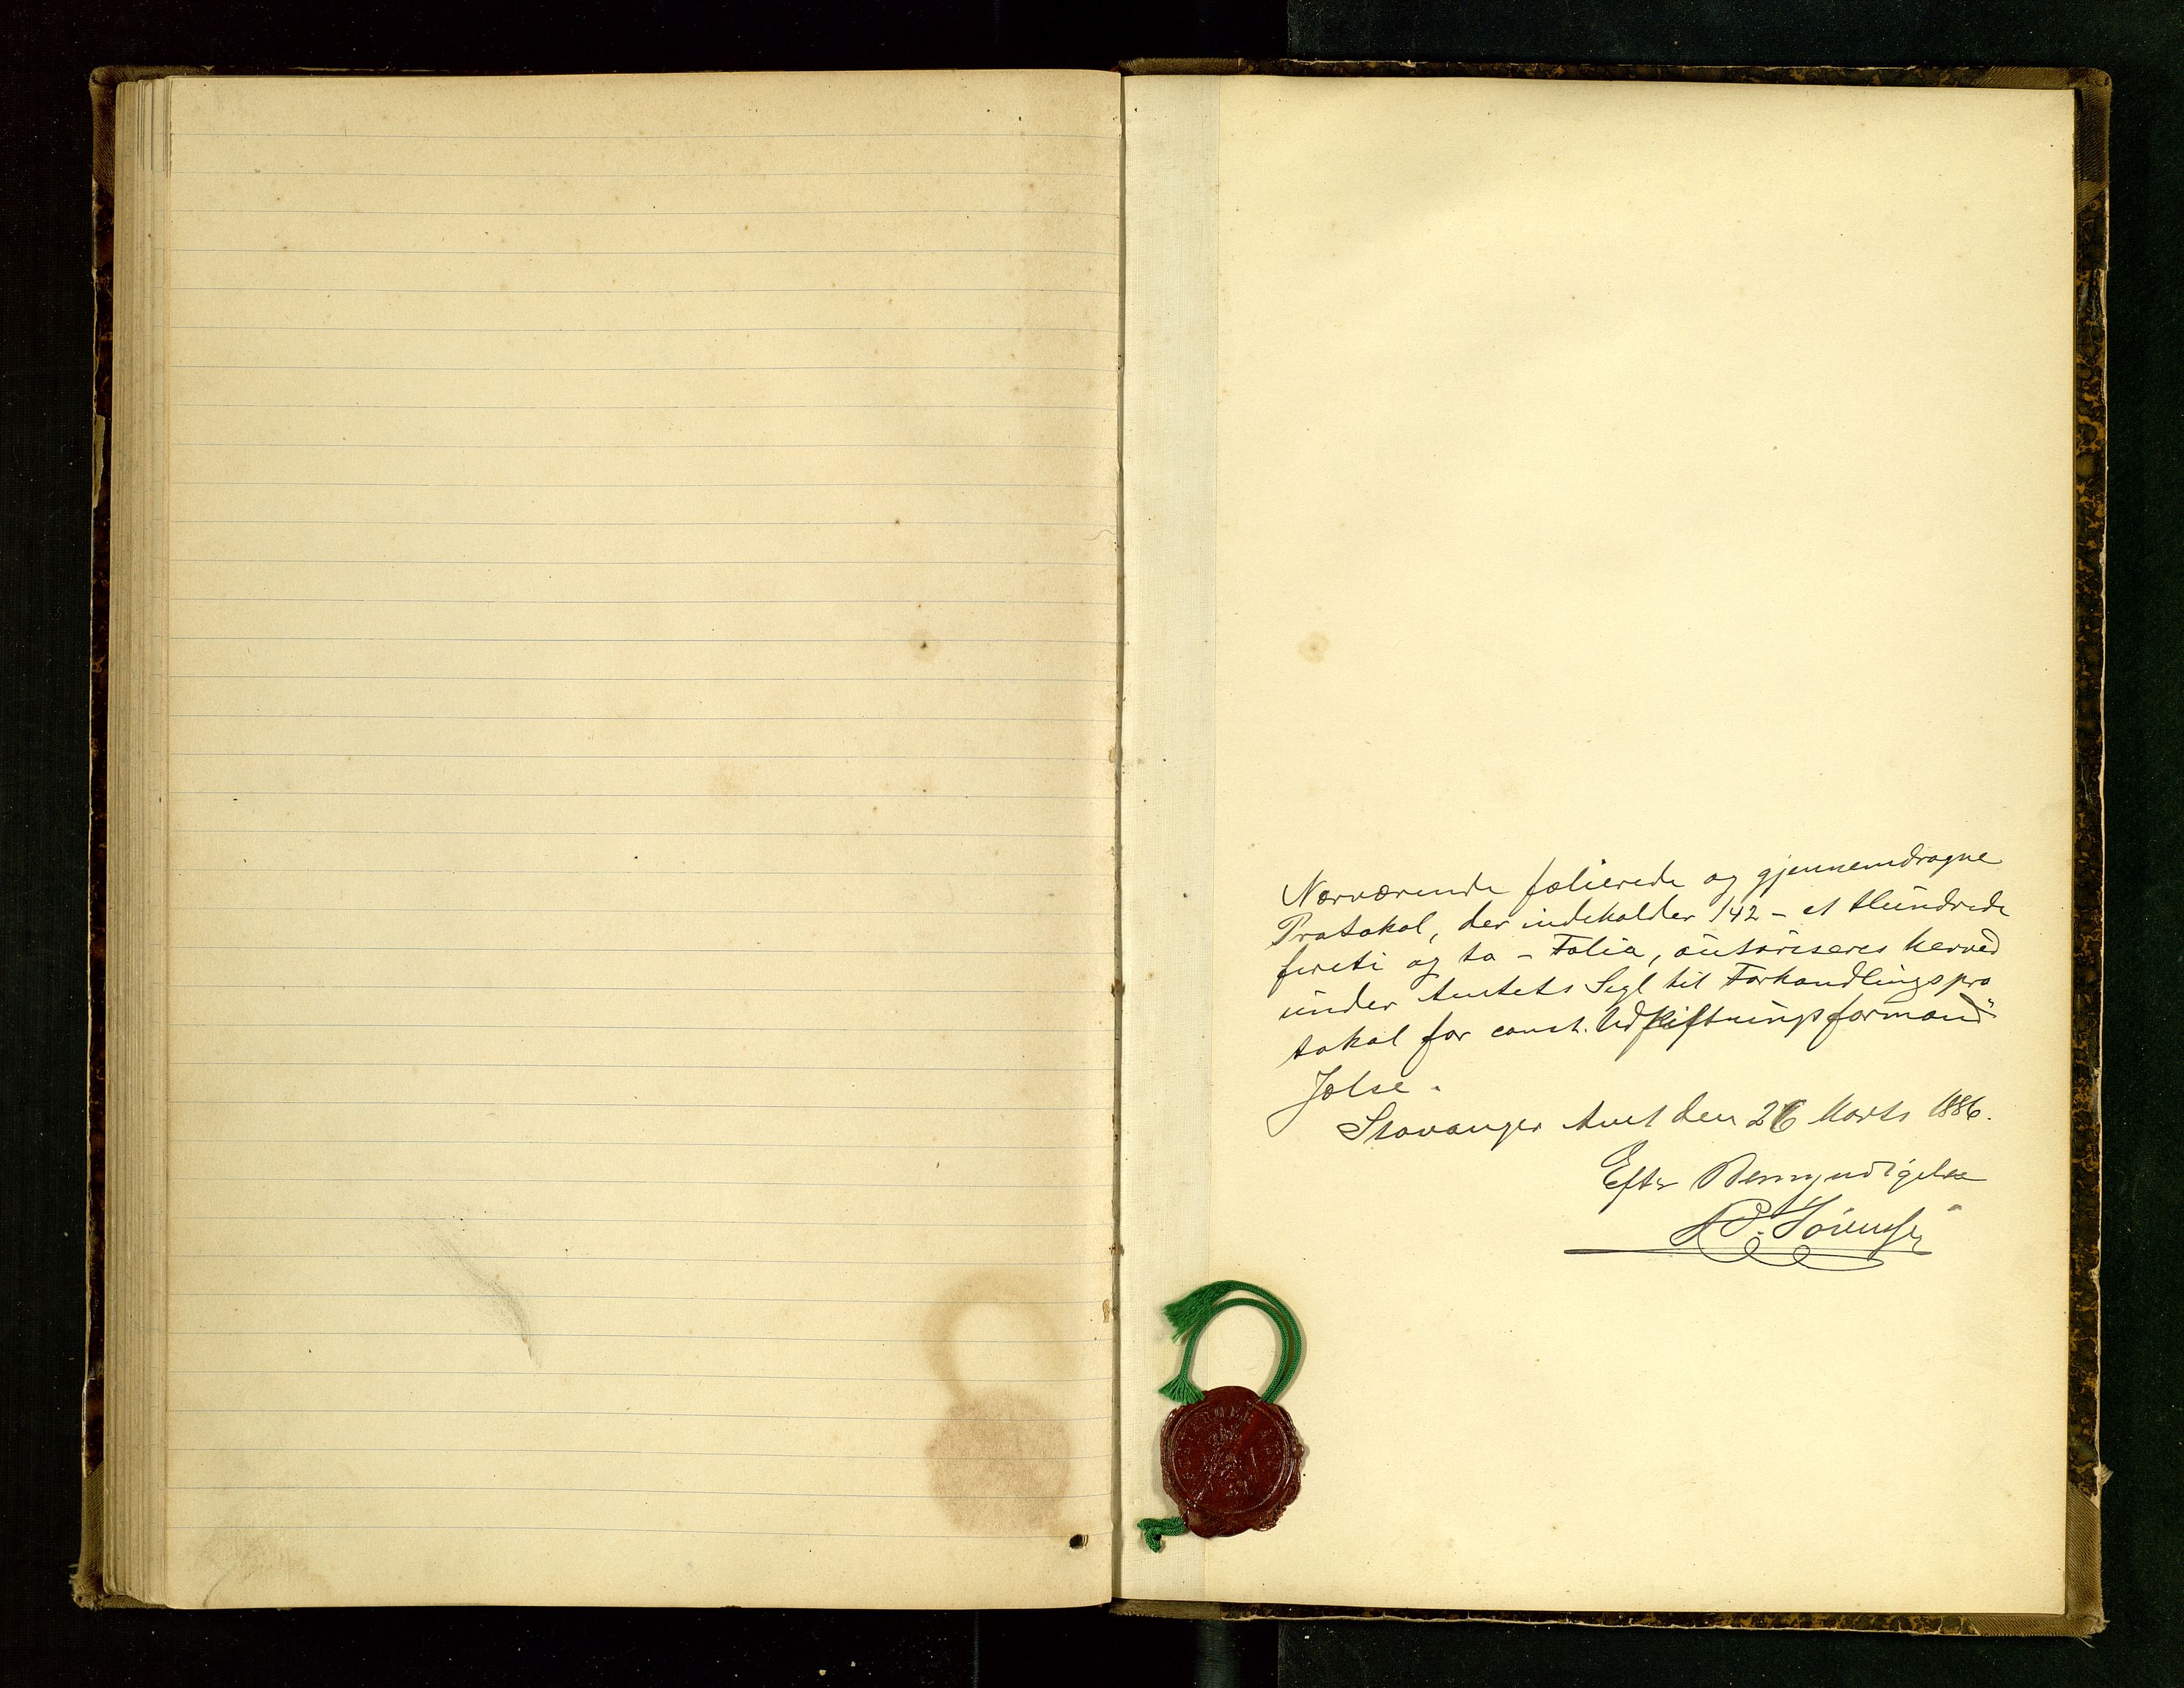 Nærværende folierede og gjennemdragne
Protokol, der indeholder 142 – et Hundrede
fireti og to – Folia, autoriseres herved
under Amtets Segl til Forhandlingspro
tokol for const. Udskiftningsformand
Jølse.
Stavanger Amt den 26 Marts 1886.
Efter Bemyndigelse
P. Sørensen